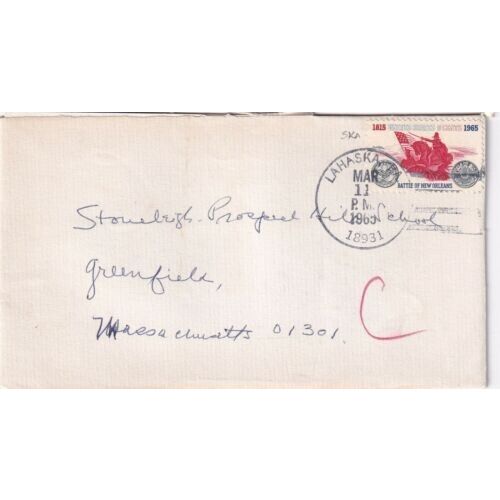 SKA
1815 UNITED STATES 5 CENTS 1965
BATTLE OF NEW ORLEANS
LAHASKA, PA.
MAR
11
P.M.
1965
18931
Stoneleigh-Prospect Hill School
Greenfield,
Massachusetts 01301.
C